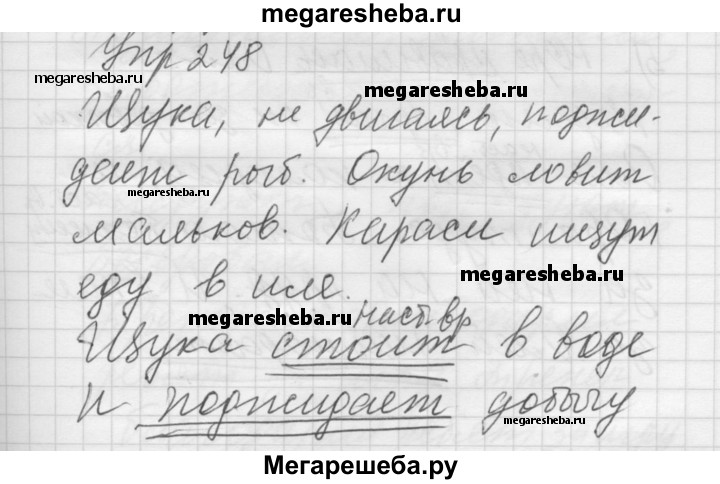 megaresheba.ru
Упр 248
megaresheba.ru
megaresheba.ru
Щука, не двигаясь, поджи-
дает рыб. Окунь ловит
megaresheba.ru
мальков. Караси ищут
megaresheba.ru
еду в иле.
megaresheba.ru
наст. вр
Щука стоит в воде
и поджидает добычу
megaresheba.ru
Мегарешеба.ру